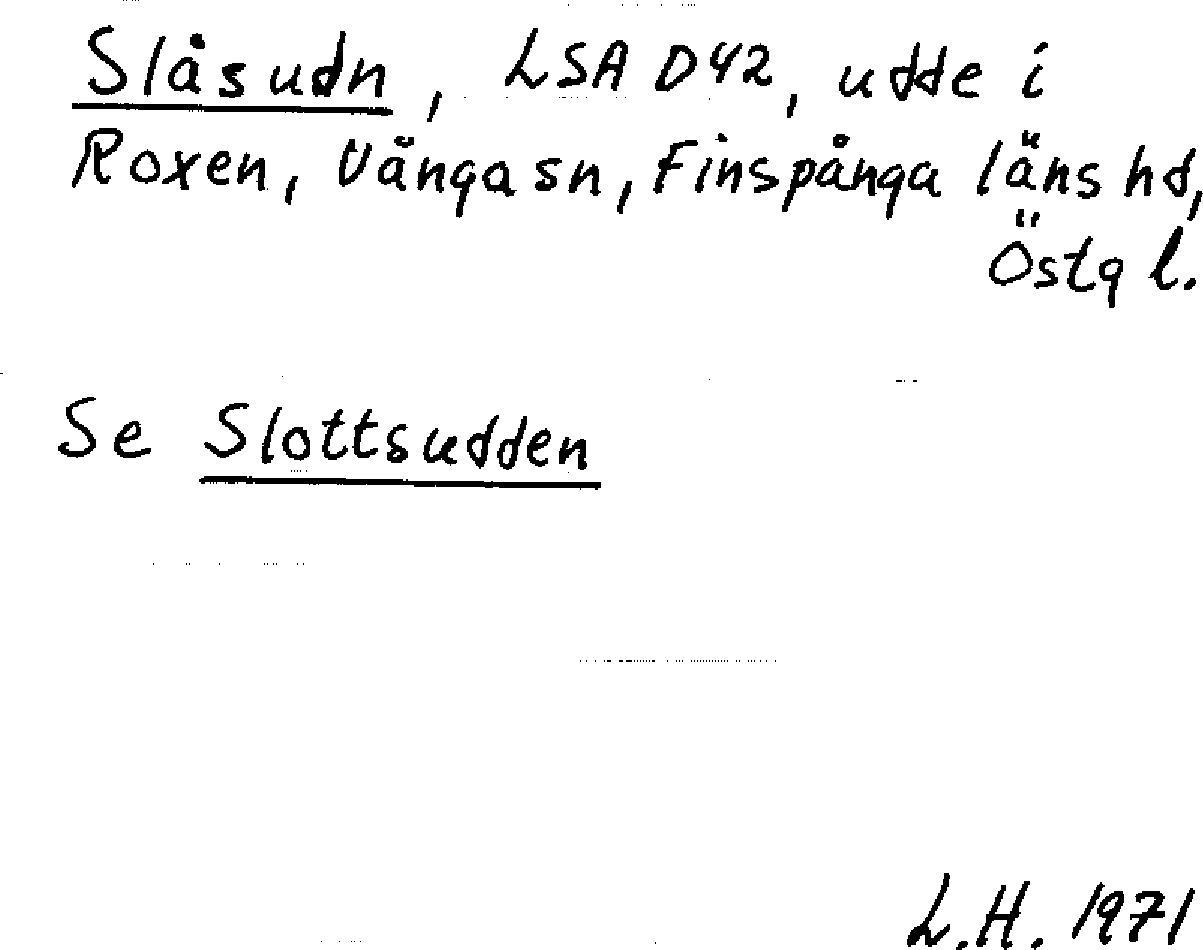 Slåsudn, LSA D42, udde i
Roxen, Vånga sn, Finspånga läns hd,
Östg l.
Se Slottsudden
L.H. 1971